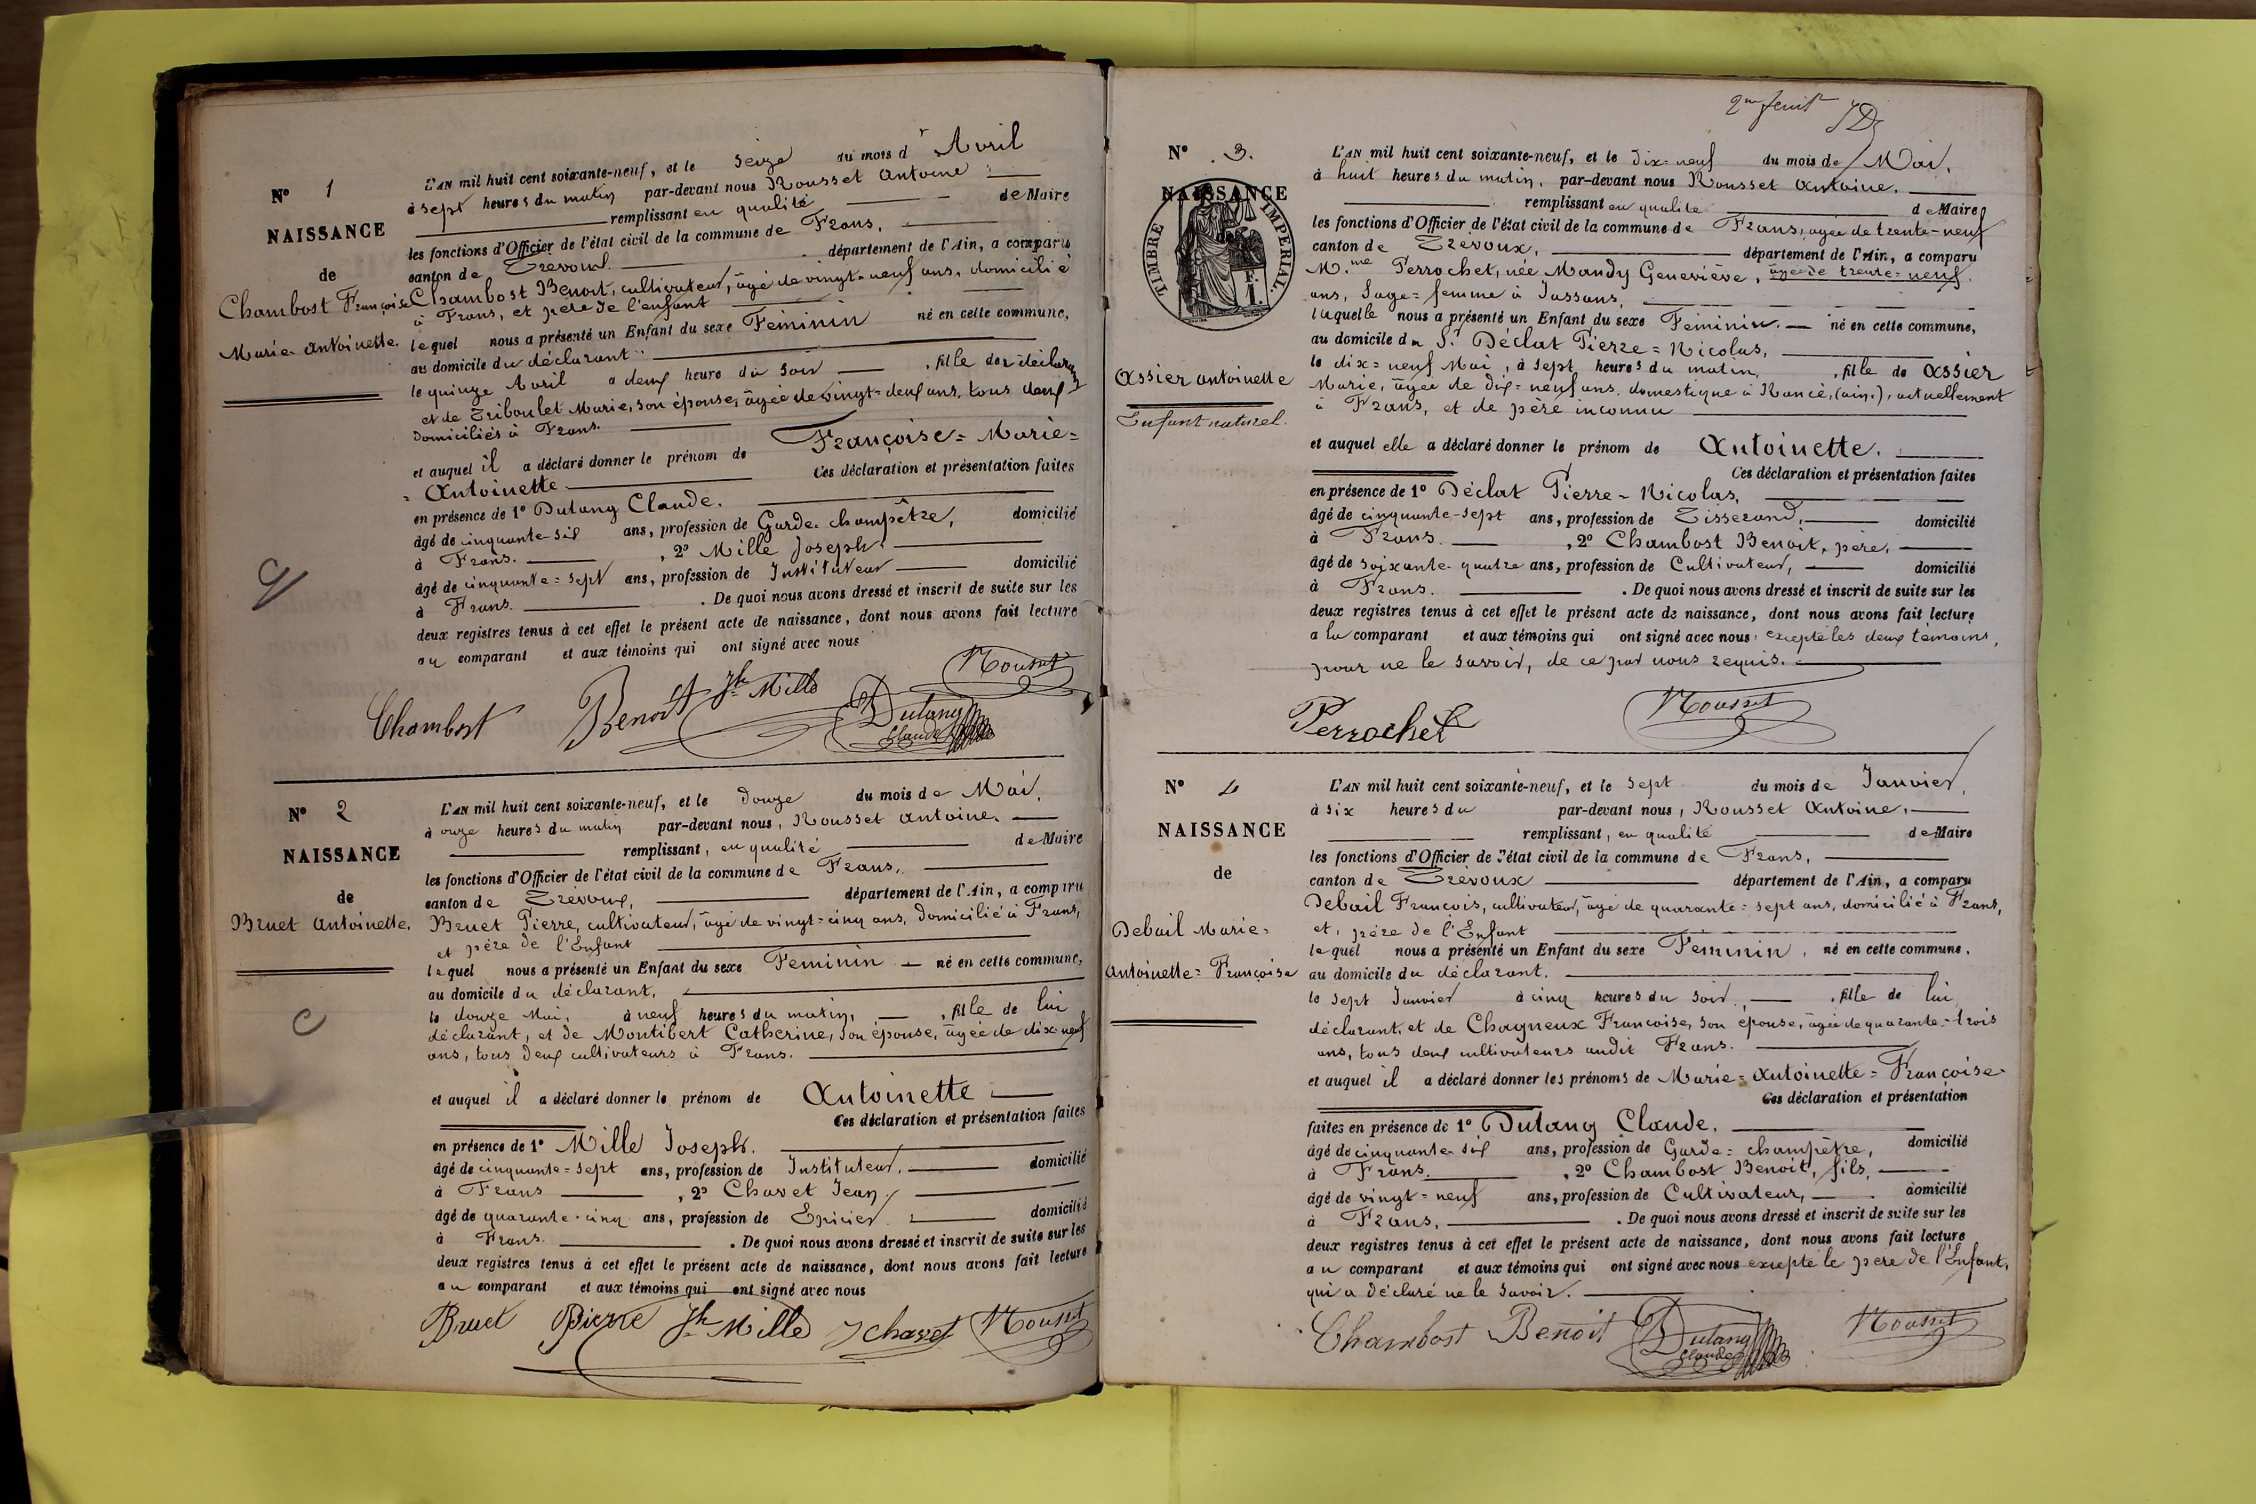 N° 1
NAISSANCE
de
Chambost Françoise
Marie-Antoinette.
L'AN mil huit cent soixante-neuf, et le seize du mois d'Avril
à sept heures du matin par-devant nous Rousset Antoine
remplissant en qualité de Maire
les fonctions d'Officier de l'état civil de la commune de Frans,
canton de Trévoux. département de l'Ain, a comparu
Chambost Benoit, cultivateur, âgé de vingt-neuf ans, domicilié
à Frans, et père de l'enfant
lequel nous a présenté un Enfant du sexe Féminin né en cette commune,
au domicile du déclarant
le quinze Avril à deux heure du soir , fille de déclarant
et de Triboulet Marie, son épouse, âgée de vingt-deux ans, tous deux
domiciliés à Frans.
et auquel il a déclaré donner le prénom de Françoise=Marie=
=Antoinette Ces déclaration et présentation faites
en présence de 1° Dutang Claude.
âgé de cinquante-six ans, profession de Garde-champêtre, domicilié
à Frans. , 2° Mille Joseph.
âgé de cinquante=sept ans, profession de Instituteur domicilié
à Frans. . De quoi nous avons dressé et inscrit de suite sur les
deux registres tenus à cet effet le présent acte de naissance, dont nous avons fait lecture
au comparant et aux témoins qui ont signé avec nous
Chambost Benoit Jh Mille Dutang Claude Rousset
N° 2
NAISSANCE
de
Bruet Antoinette.
C
L'AN mil huit cent soixante-neuf, et le douze du mois de Mai,
à onze heures du matin par-devant nous, Rousset Antoine,
remplissant, en qualité de Maire
les fonctions d'Officier de l'état civil de la commune de Frans,
canton de Trévoux, département de l'Ain, a comparu
Bruet Pierre, cultivateur, âgé de vingt=cinq ans, domicilié à Frans,
et père de l'Enfant
lequel nous a présenté un Enfant du sexe Féminin né en cette commune,
au domicile du déclarant,
le douze Mai, à neuf heures du matin, , fille de lui
déclarant, et de Montibert Catherine, son épouse, âgée de dix-neuf
ans, tous deux cultivateurs à Frans.
et auquel il a déclaré donner le prénom de Antoinette
Ces déclaration et présentation faites
en présence de 1° Mille Joseph.
âgé de cinquante=sept ans, profession de Instituteur, domicilié
à Frans , 2° Chavet Jean,
âgé de quarante-cinq ans, profession de Epicier domicilié
à Frans. . De quoi nous avons dressé et inscrit de suite sur les
deux registres tenus à cet effet le présent acte de naissance, dont nous avons fait lecture
au comparant et aux témoins qui ont signé avec nous
Bruet Pierre Jh Mille J chavet Rousset
N° 3.
NAISSANCE
de
TIMBRE IMPERIAL.
F.
1.
Assier Antoinette
Enfant naturel.
L'AN mil huit cent soixante-neuf, et le dix-neuf du mois de Mai,
à huit heures du matin, par-devant nous Rousset Antoine,
remplissant en qualité de Maire
les fonctions d'Officier de l'état civil de la commune de Frans, âgée de trente-neuf
canton de Trévoux, département de l'Ain, a comparu
M.me Perrochet, née Mandy Geneviève, âgée de trente=neuf
ans, Sage=femme à Jassans,
laquelle nous a présenté un Enfant du sexe Féminin. né en cette commune,
au domicile du Sr. Déclat Pierre=Nicolas,
le dix=neuf Mai, à sept heures du matin, , fille de Assier
Marie, âgée de dix=neuf ans, domestique à Rancé, (ain,), actuellement
à Frans, et de père inconnu
et auquel elle a déclaré donner le prénom de Antoinette.
Ces déclaration et présentation faites
en présence de 1° Déclat Pierre-Nicolas,
âgé de cinquante-sept ans, profession de Tisserand, domicilié
à Frans. , 2° Chambost Benoit, père,
âgé de soixante-quatre ans, profession de Cultivateur, domicilié
à Frans. . De quoi nous avons dressé et inscrit de suite sur les
deux registres tenus à cet effet le présent acte de naissance, dont nous avons fait lecture
a la comparant et aux témoins qui ont signé avec nous, excepté les deux témoins,
pour ne le savoir, de ce par nous requis.
Perrochet Rousset
N° 4
NAISSANCE
de
Debail Marie=
Antoinette=Françoise
L'AN mil huit cent soixante-neuf, et le sept du mois de Janvier,
à six heures du par-devant nous, Rousset Antoine,
remplissant, en qualité de Maire
les fonctions d'Officier de l'état civil de la commune de Frans,
canton de Trévoux département de l'Ain, a comparu
Debail François, cultivateur, âgé de quarante=sept ans, domicilié à Frans,
et, père de l'Enfant
lequel nous a présenté un Enfant du sexe Féminin, né en cette commune,
au domicile du déclarant.
le sept Janvier à cinq heures du soir, , fille de lui
déclarant, et de Chagneux Françoise, son épouse, âgée de quarante-trois
ans, tous deux cultivateurs audit Frans.
et auquel il a déclaré donner les prénoms de Marie=Antoinette=Françoise.
Ces déclaration et présentation
faites en présence de 1° Dutang Claude.
âgé de cinquante-six ans, profession de Garde=champêtre, domicilié
à Frans. , 2° Chambost Benoit, fils,
âgé de vingt=neuf ans, profession de Cultivateur, domicilié
à Frans, . De quoi nous avons dressé et inscrit de suite sur les
deux registres tenus à cet effet le présent acte de naissance, dont nous avons fait lecture
au comparant et aux témoins qui ont signé avec nous excepté le père de l'Enfant,
qui a déclaré ne le savoir.
Chambost Benoit Dutang Claude Rousset